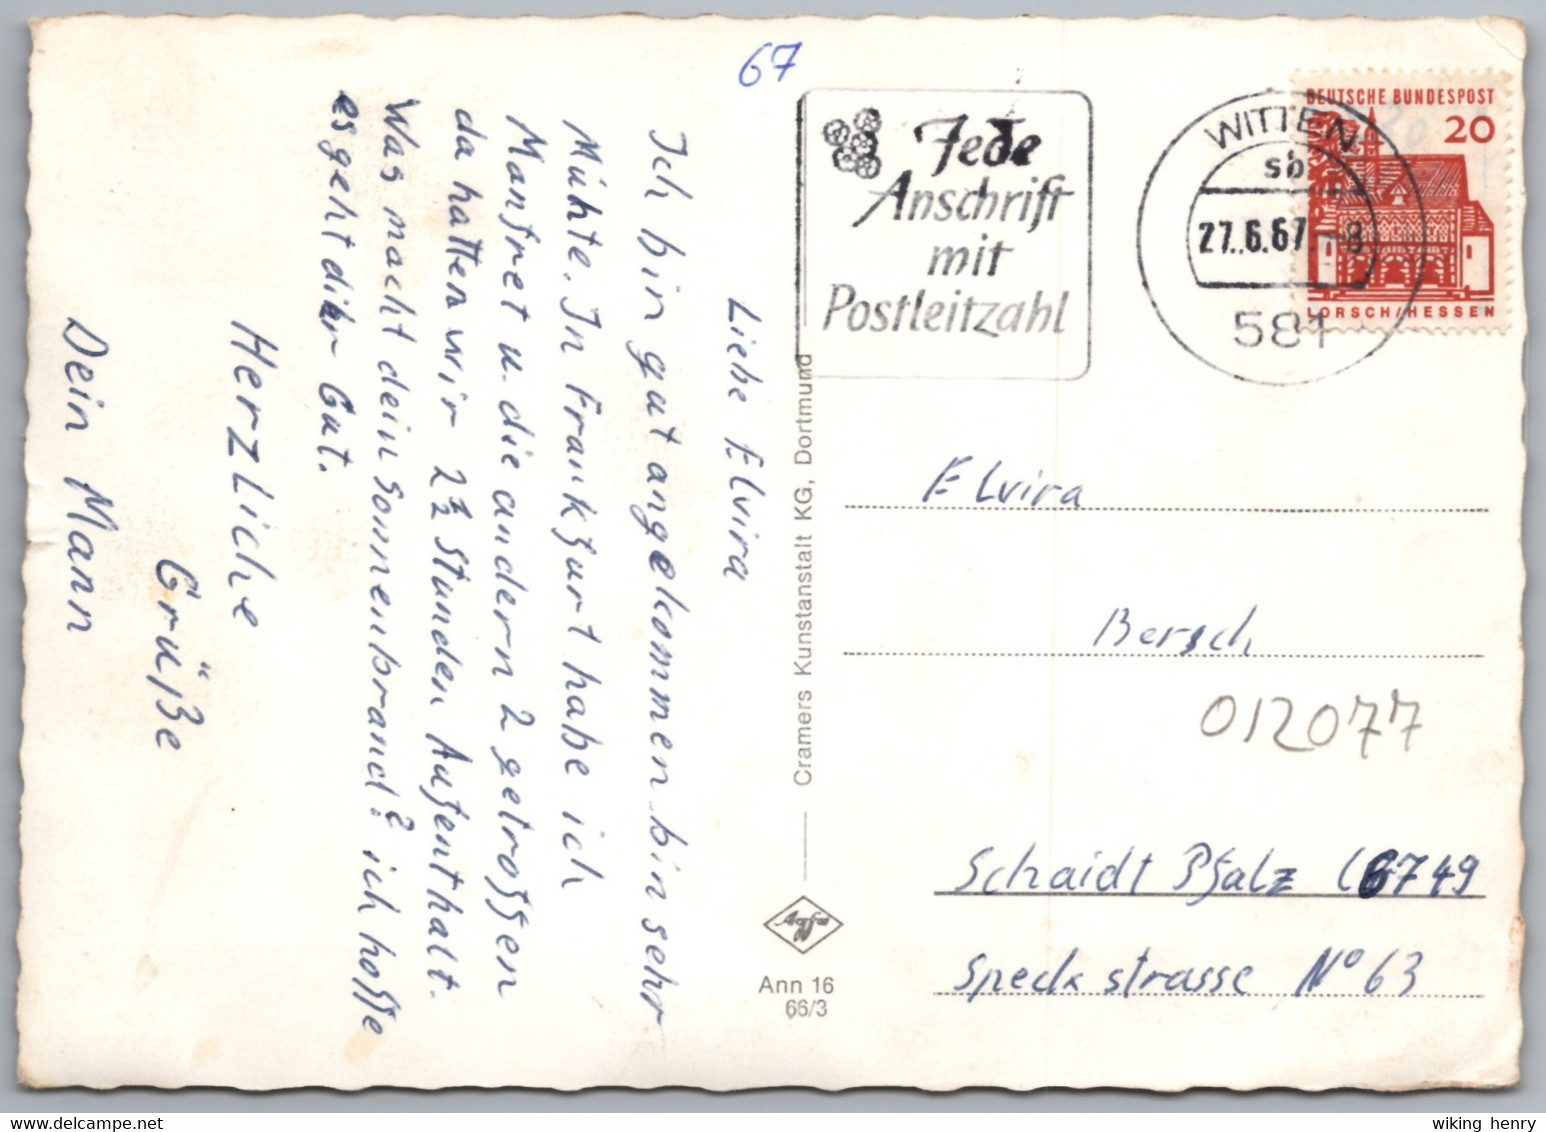 67
Jede
Anschrift
mit
Postleitzahl
WITTEN
sb
27.6.67.-8
581
DEUTSCHE BUNDESPOST
20
LORSCH/HESSEN
Liebe Elvira
Ich bin gut angekommen bin sehr
Mühte. In Frankfurt habe ich
Manfret u. die andern 2 getroffen
da hatten wir 2½ Stunden Aufenthalt.
Was macht dein Sonnenbrand? ich hoffe
es geht dihr Gut.
Herzliche
Grüße
Dein Mann
Cramers Kunstanstalt KG, Dortmund
Agfa
Ann 16
66/3
Elvira
Bersch
012077
Schaidt Pfalz (6749
Speckstrasse No 63
wiking henry